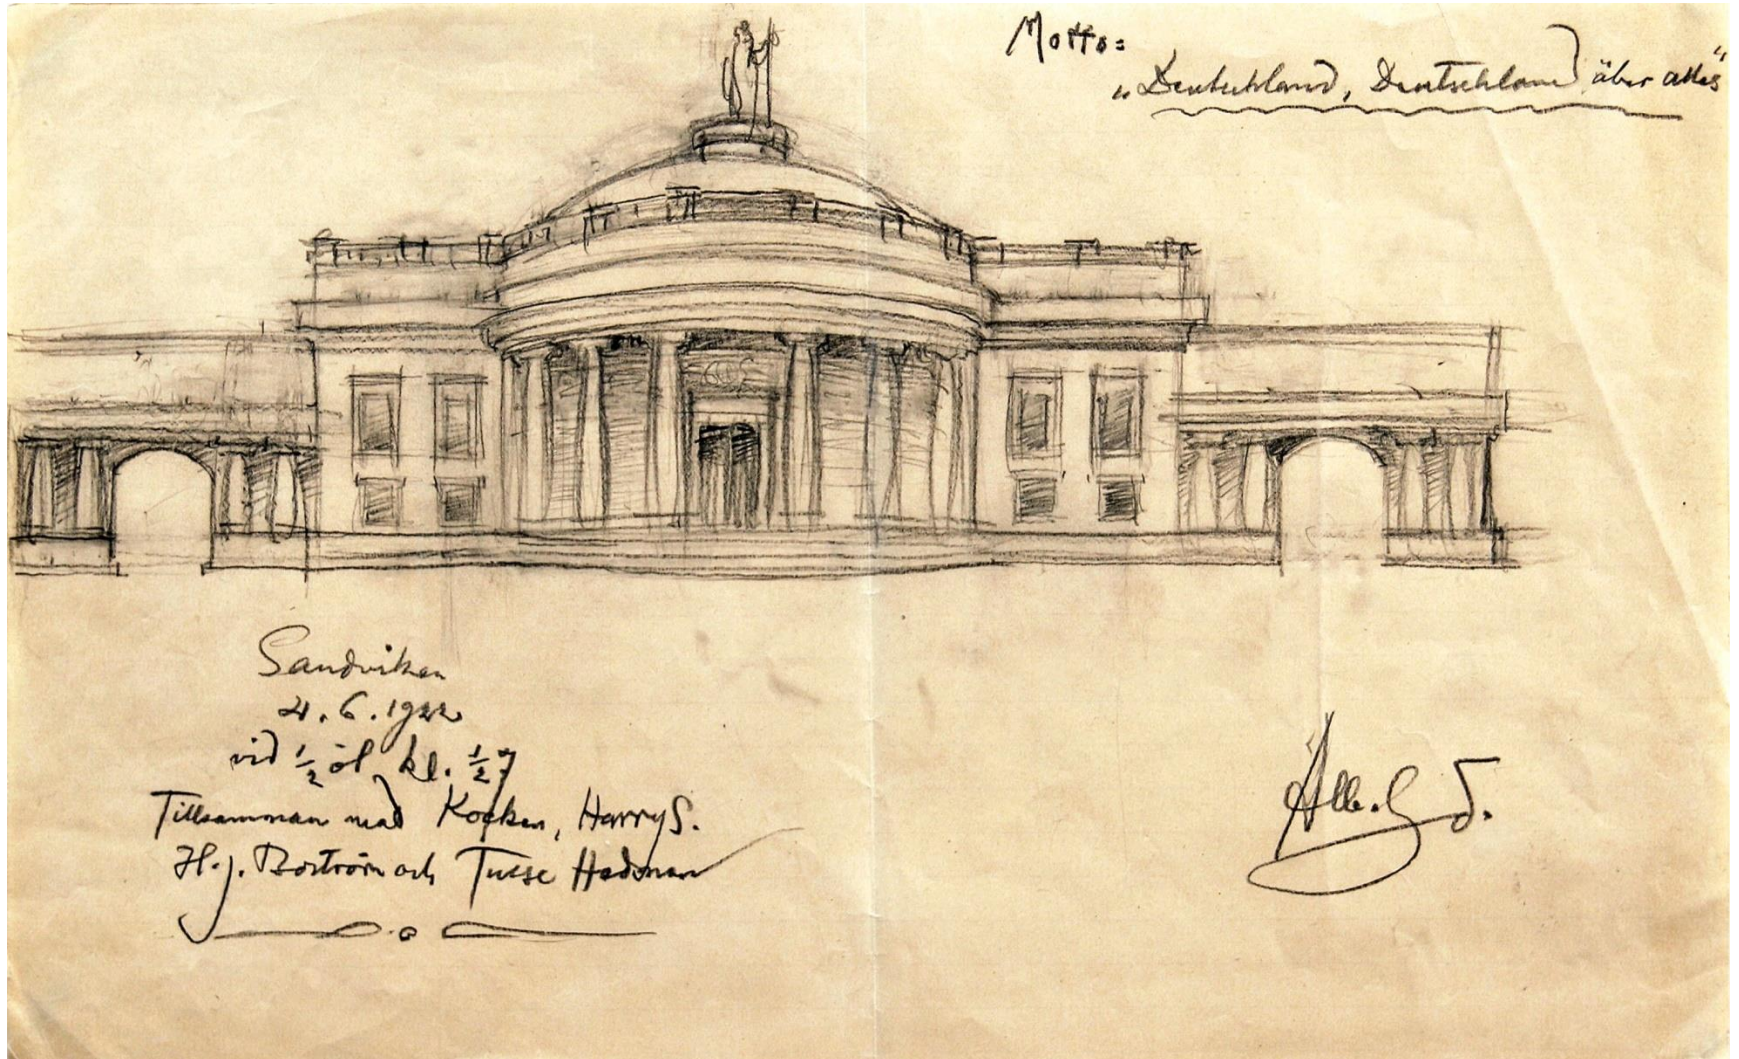 Motto:
„Deutschland, Deutschland über alles"
Sandviken
4.6.1922
vid ½ öl kl. ½7
Tillsamman med Kocken, Harry S.
H.J. Boström och Tusse Hedman